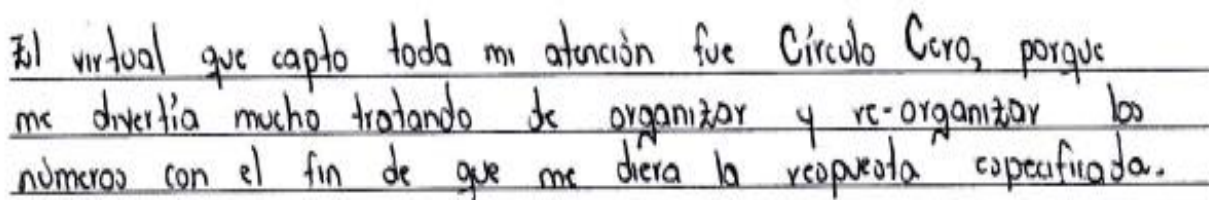 El virtual que capto toda mi atención fue Círculo Cero, porque
me divertía mucho tratando de organizar y re-organizar los
números con el fin de que me diera la respuesta especificada.